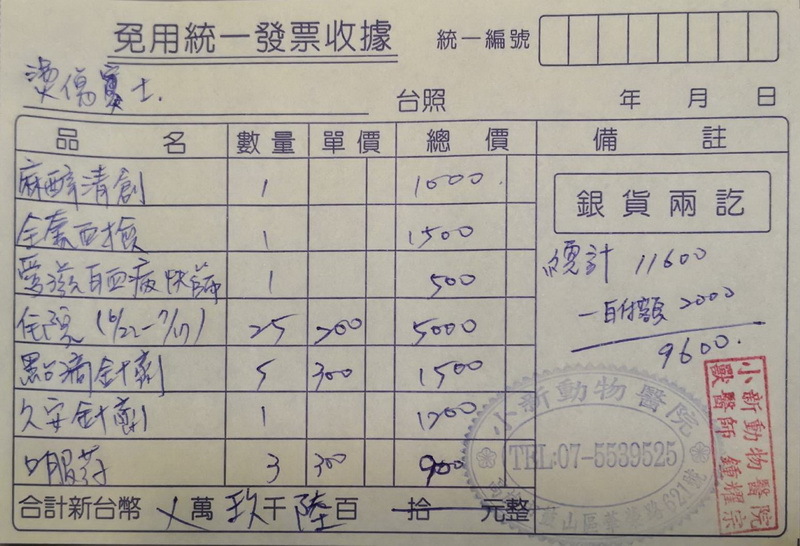 免用統一發票收據
統一編號
燙傷賓士.
台照
年 月 日
品名 數量 單價 總價 備註
麻醉清創 1 1000.
全套血檢 1 1500
愛滋白血病快篩 1 500
住院 (6/22-7/17) 25 200 5000
點滴針劑 5 300 1500
久安針劑 1 1200
口服藥 3 300 900
銀貨兩訖
總計 11600
2000
9600.
合計新台幣 萬 玖千 陸百 拾 元整
小新動物醫院
TEL:07-5539525
山區 路621號
小新動物醫院
獸醫師 鍾耀宗